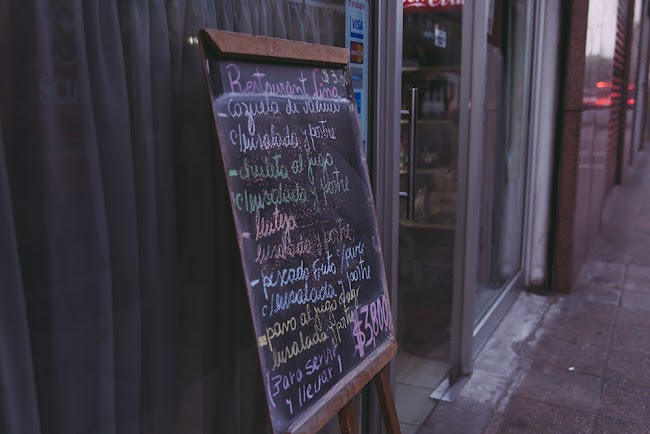 Restaurant Lina
Cazuela de Vacuno
c/ensalada y postre
- chuleta al jugo
c/ensalada y postre
- lenteja
ensalada y postre
- pescado frito c/pure
c/ensalada y postre
- pavo al jugo
ensalada y postre
$3800
Para servir
y llevar!
VISA